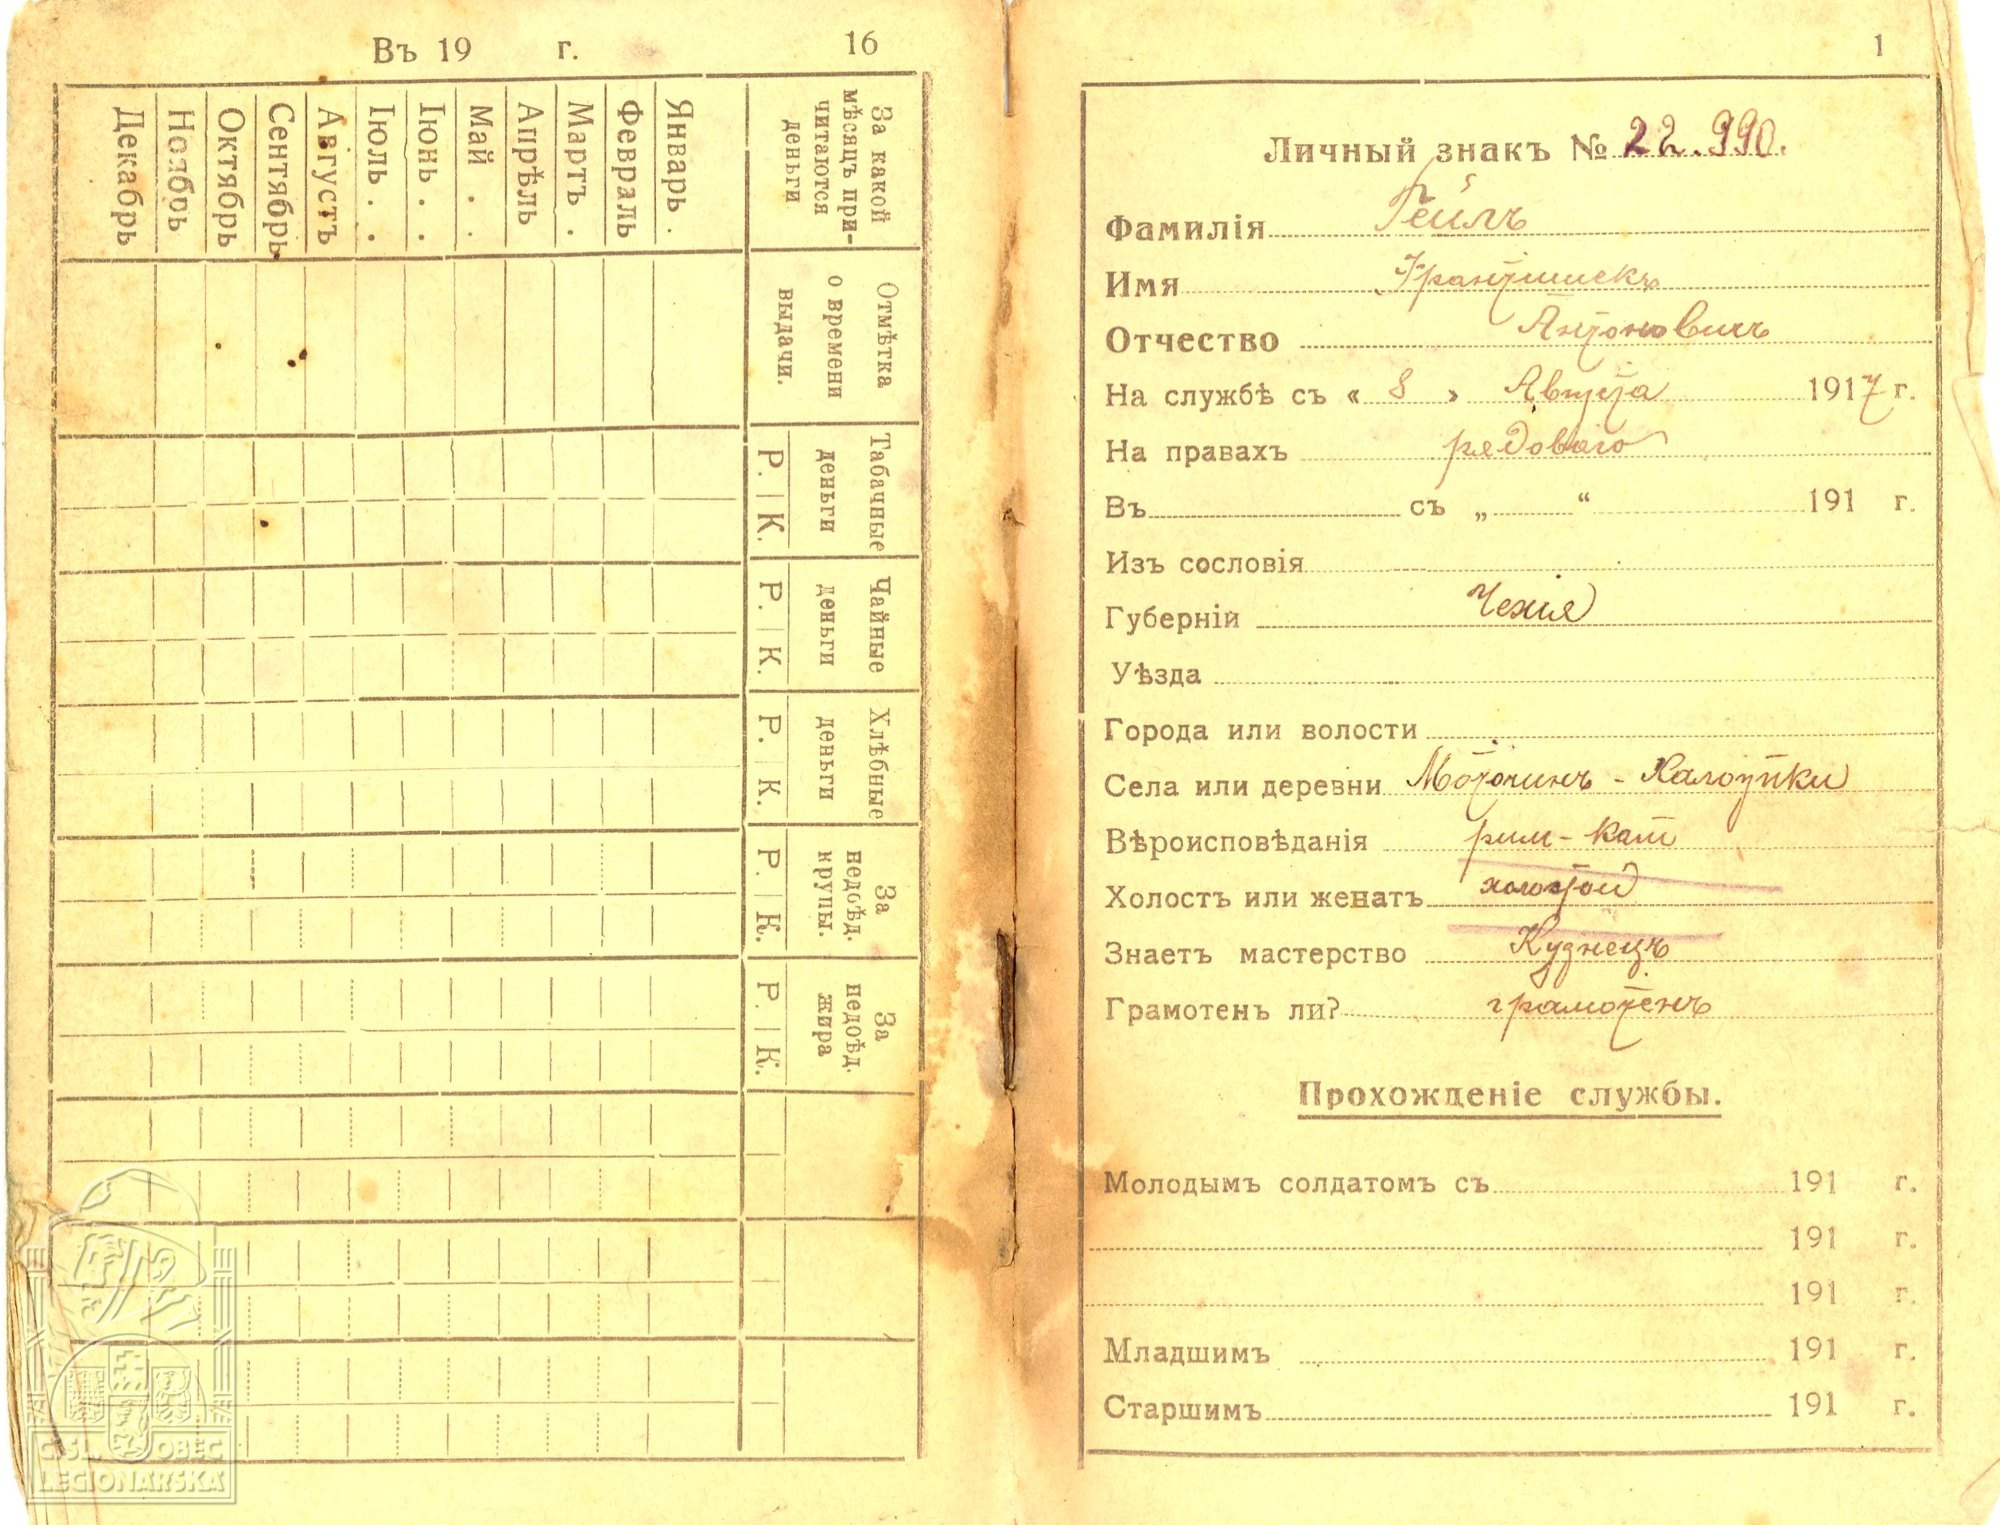 Въ 19 г.
16
За какой мѣсяцъ причитаются деньги
Январь .
Февраль
Мартъ .
Апрѣль
Май . .
Іюнь . .
Іюль . .
Августъ
Сентябрь
Октябрь
Ноябрь
Декабрь
Отмѣтка о времени выдачи.
Табачные деньги
Р. К.
Чайные деньги
Р. К.
Хлѣбные деньги
Р. К.
За недоѣд. крупы.
Р. К.
За недоѣд. жира
Р. К.
ČSL. OBEC
LEGIONÁŘSKÁ
1
Личный знакъ № 22.990.
Фамилія Гейлъ
Имя Франтишекъ
Отчество Антоновичъ
На службѣ съ « 8 » Августа 1917 г.
На правахъ рядоваго
Въ съ „ “ 191 г.
Изъ сословія
Губерній Чехія
Уѣзда
Города или волости
Села или деревни Моточинъ - Халоупки
Вѣроисповѣданія рим-кат
Холостъ или женатъ холостой
Знаетъ мастерство Кузнецъ
Грамотенъ ли? грамотенъ
Прохожденіе службы.
Молодымъ солдатомъ съ 191 г.
191 г.
191 г.
Младшимъ 191 г.
Старшимъ 191 г.